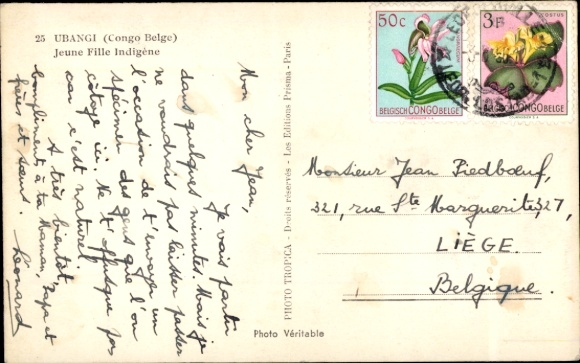 25 UBANGI (Congo Belge)
Jeune Fille Indigène
Mon cher Jean,
Je vais partir
dans quelques minutes. Mais je
ne voudrais pas laisser passer
l'occasion de t'envoyer un
spécimen des gens que l'on
côtoye ici. Ne t'offusque pas
car c'est naturel.
A très bientôt
Compliments à ta Maman, Papa et
frères et sœurs.
Léonard
PHOTO TROPICA - Droits réservés - Les Editions Prisma - Paris
Photo Véritable
50c
BELGISCH CONGO BELGE
3F
BELGISCH CONGO BELGE
Monsieur Jean Piedbœuf,
321, rue Ste Marguerite, 327,
LIÈGE.
Belgique.